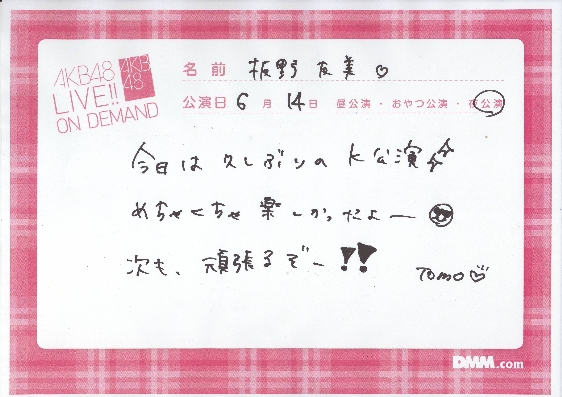 AKB48
LIVE!!
ON DEMAND
AKB
48
名前 板野友美♡
公演日 6月14日 昼公演・おやつ公演・夜公演
今日は久しぶりのK公演
めちゃくちゃ楽しかっただよー
次も、頑張るぞー!!
Tomo♡
DMM.com